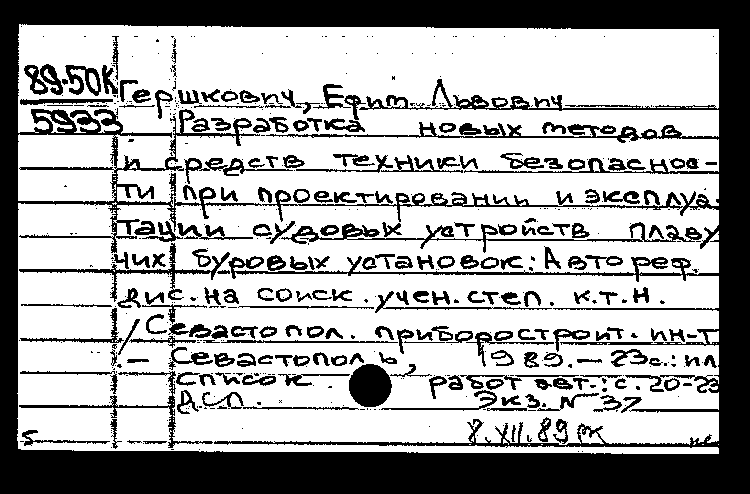 89-50К Гершкович, Ефим Львович
5933 Разработка новых методов
и средств техники безопаснос-
ти при проектировании и эксплуа-
тации судовых устройств плаву
чих буровых установок: Автореф.
дис. на соиск. учен. степ. к.т.н.
/Севастопол. приборостроит. ин-т
. — Севастополь, 1989. — 23с.: ил
Список работ авт.: с. 20-23
ДСП. Экз. № 37
8.XII.89
5